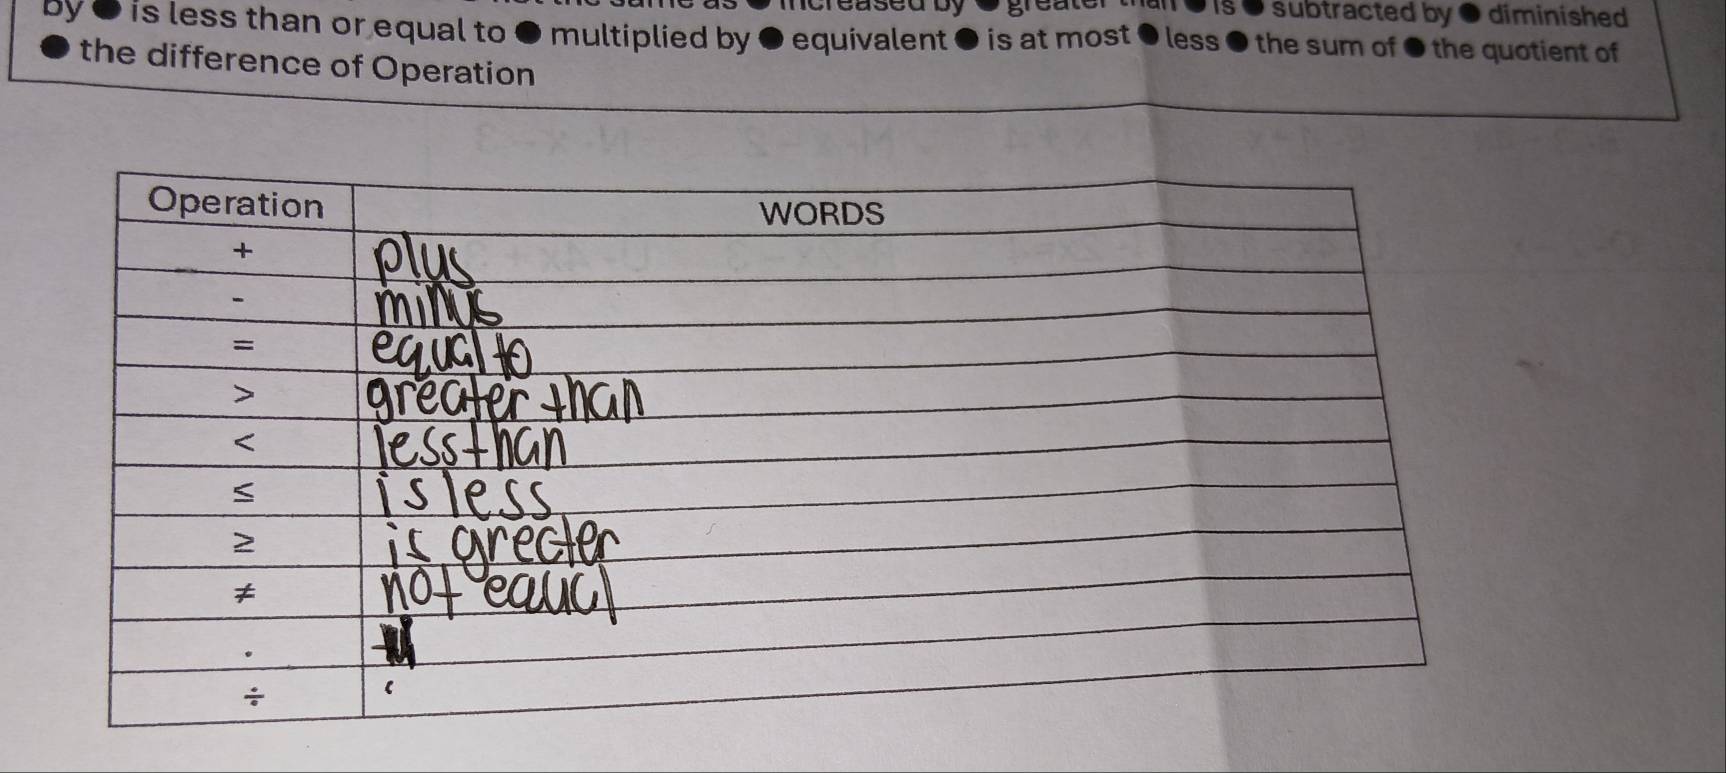 by ● is less than or equal to ● multiplied by ● equivalent ● is at most ● less ● the sum of ● the quotient of
not the same as ● increased by ● greater than ● is ● subtracted by ● diminished
● the difference of Operation
Operation WORDS
+ plus
- minus
= equal to
> greater than
< less than
≤ is less
≥ is grecter
≠ not eaucl
.
÷